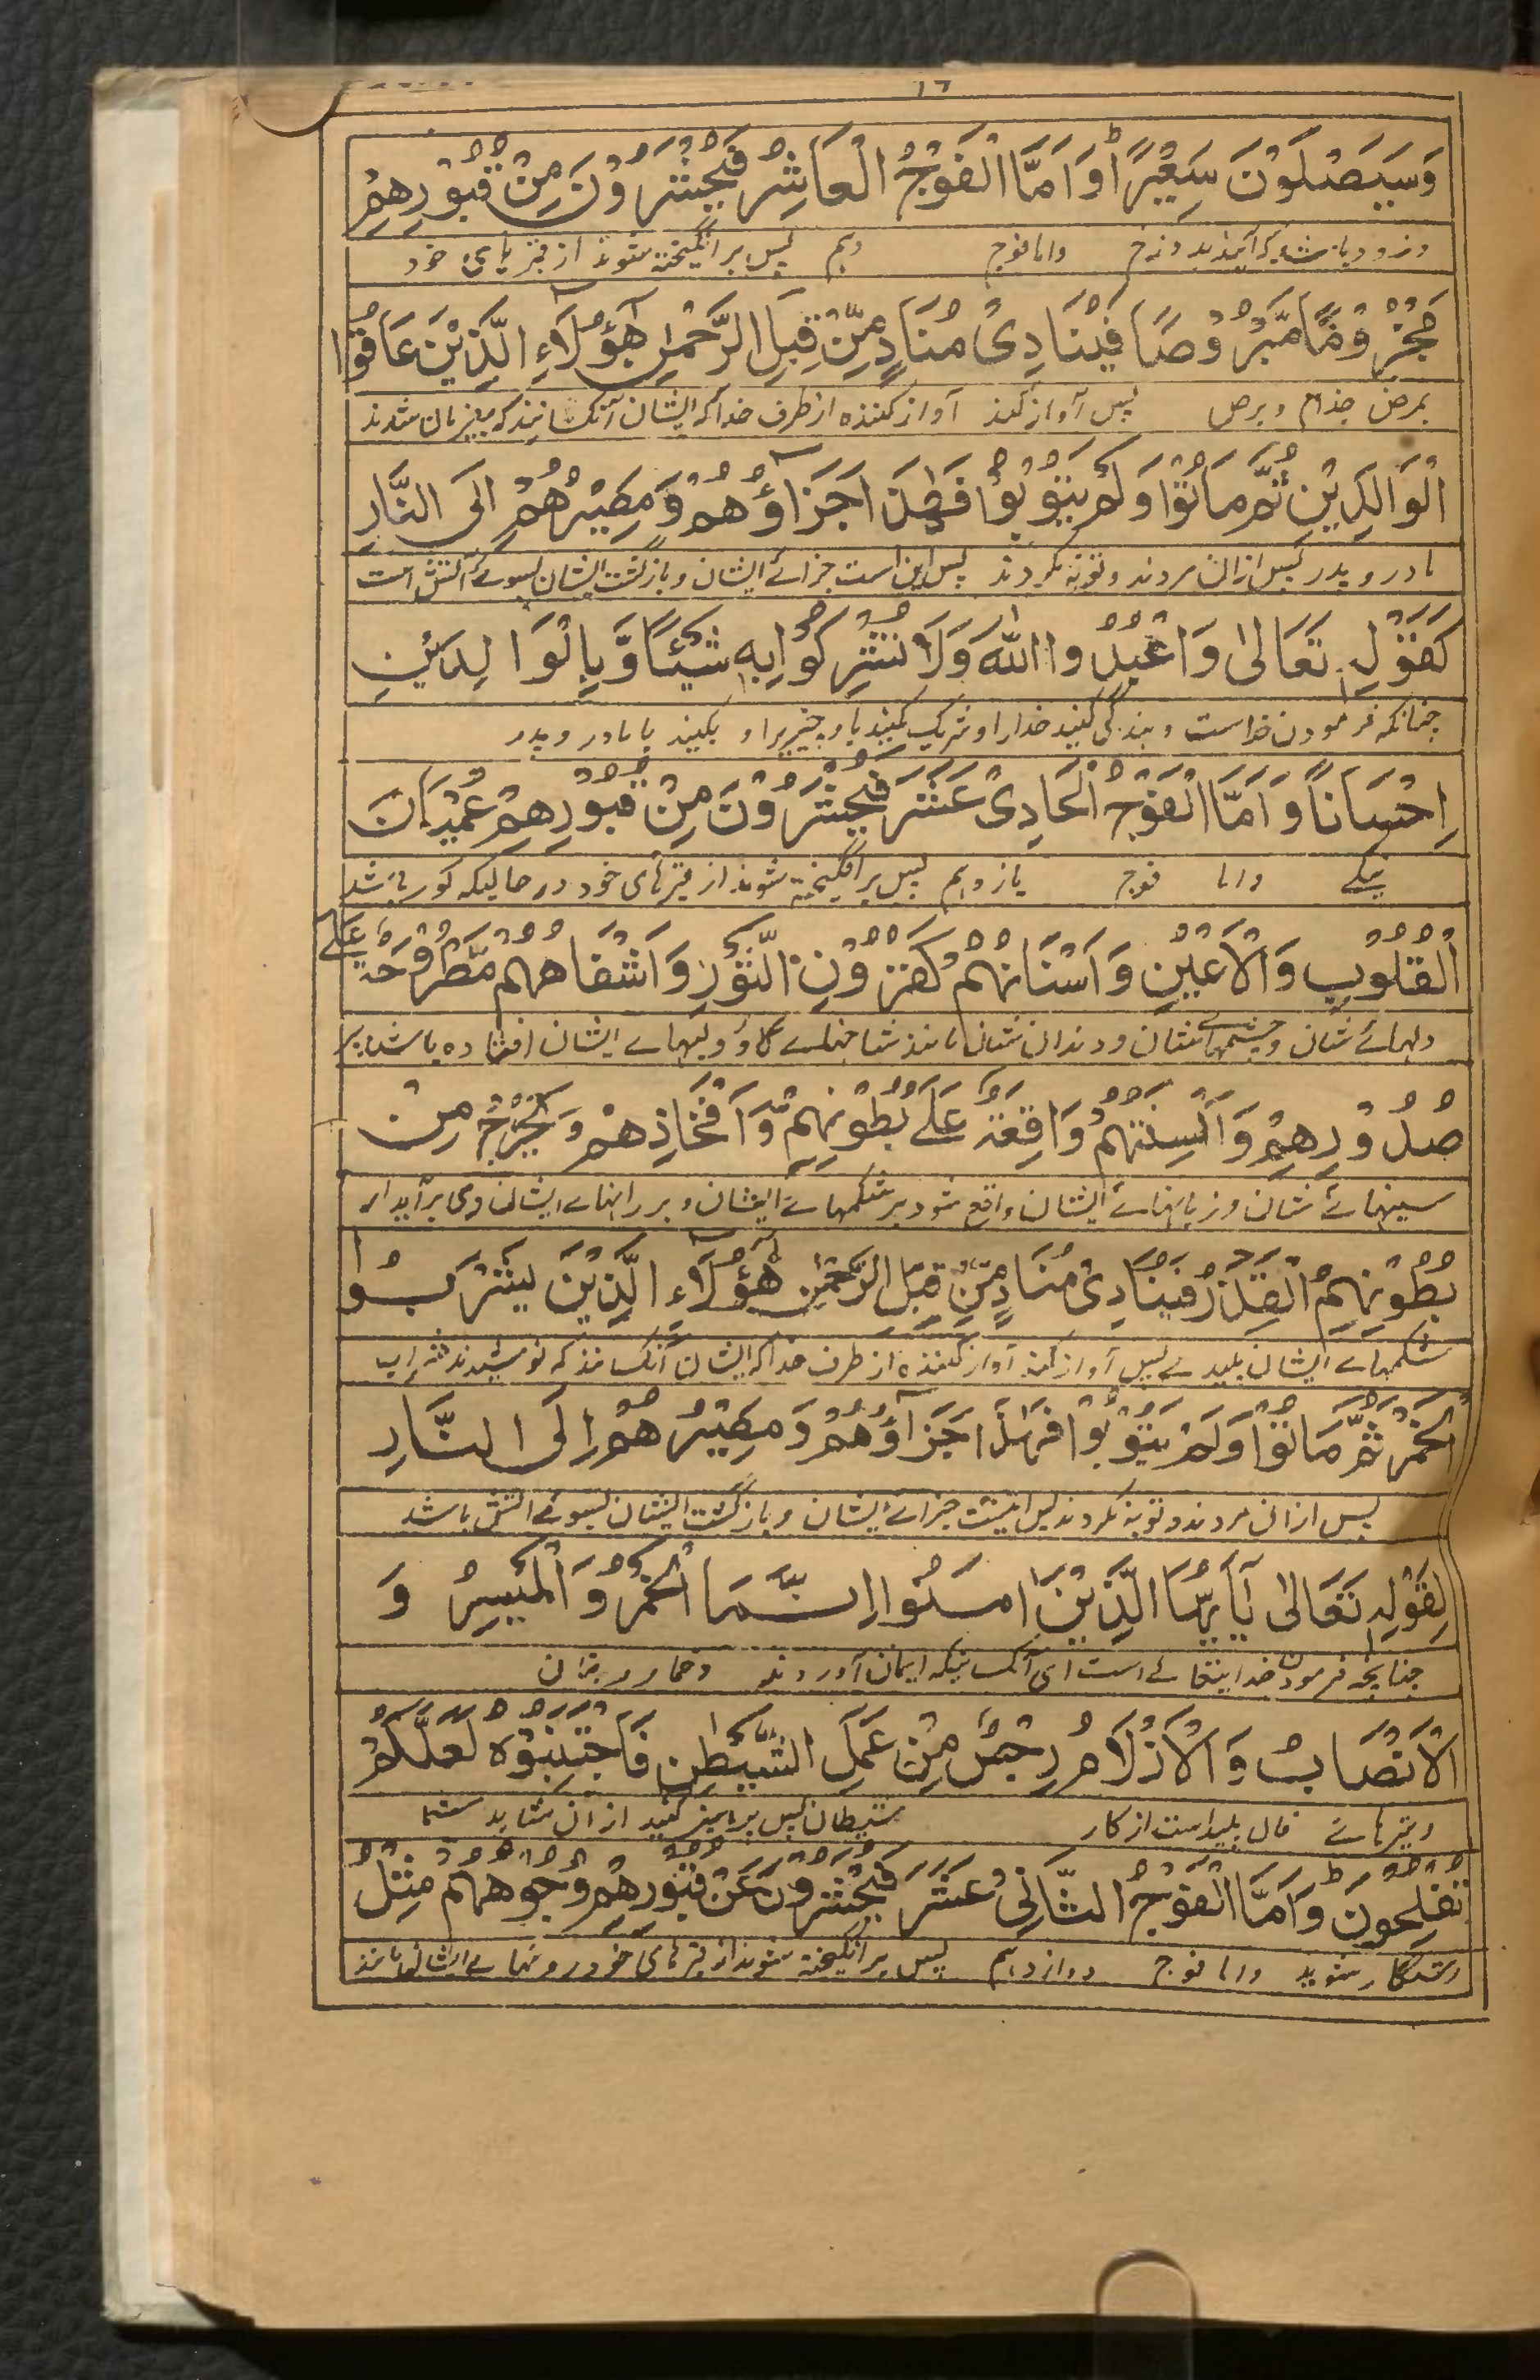 ١٦
وَسَيَصْلَوْنَ سَعِيْرًا ط وَاَمَّا الْفَوْجُ الْعَاشِرُ فَيُحْشَرُوْنَ مِنْ قُبُوْرِهِمْ
وزود باشد که آیند بدوزخ واما فوج دهم پس برانگیخته شوند از قبرهای خود
مَجْذُوْمًا مَّبْرُوْصًا فَيُنَادِیْ مُنَادٍ مِّنْ قِبَلِ الرَّحْمٰنِ هٰٓؤُلَآءِ الَّذِيْنَ عَاقُوْا
بمرض جذام وبرص پس آواز کند آواز کننده از طرف خدا که ایشان آنکسانند که بیفرمان شدند
الْوَالِدَيْنِ ثُمَّ مَاتُوْا وَلَمْ يَتُوْبُوْا فَهٰذَا جَزَآؤُهُمْ وَمَصِيْرُهُمْ اِلَی النَّارِ
مادر و پدر پس ازان مردند و توبه نکردند پس این است جزائے ایشان و بازگشت ایشان بسوئے آتش است
كَقَوْلِهٖ تَعَالٰی وَاعْبُدُوا اللّٰهَ وَلَا تُشْرِكُوْا بِهٖ شَيْئًا وَّبِالْوَالِدَيْنِ
چنانکه فرمودن خداست و بندگی کنید خدارا و شریک مکنید باو چیزیرا و بکنید با مادر و پدر
اِحْسَانًا وَاَمَّا الْفَوْجُ الْحَادِیْ عَشَرَ فَيُحْشَرُوْنَ مِنْ قُبُوْرِهِمْ عُمْيَانَ
نیکے واما فوج یازدهم پس برانگیخته شوند از قبرهای خود در حالیکه کور باشد
الْقُلُوْبِ وَالْاَعْيُنِ وَاَسْنَانُهُمْ كَقَرْوُنِ الثَّوْرِ وَاَشْفَاهُهُمْ مَّطْرُوْحَةٌ عَلٰے
دلهائے شان و چشمهائے شان و دندان شان مانند شاخهاے گاؤ و لبهاے ایشان افتاده باشد بر
صُدُوْرِهِمْ وَاَلْسِنَتُهُمْ وَاقِعَةٌ عَلٰے بُطُوْنِهِمْ وَاَفْخَاذِهِمْ وَيَخْرُجُ مِنْ
سینهائے شان و زبانهائے ایشان واقع شود بر شکمهائے ایشان و بر رانهاے ایشان و می برآید از
بُطُوْنِهِمُ الْقَذَرُ فَيُنَادِیْ مُنَادٍ مِّنْ قِبَلِ الرَّحْمٰنِ هٰٓؤُلَآءِ الَّذِيْنَ يَشْرَبُوْا
شکمهاے ایشان پلیدے پس آواز کند آواز کننده از طرف خدا که ایشان آنکسانند که نوشیدند شراب
الْخَمْرَ ثُمَّ مَاتُوْا وَلَمْ يَتُوْبُوْا فَهٰذَا جَزَآؤُهُمْ وَمَصِيْرُهُمْ اِلَی النَّارِ
پس ازان مردند و توبه نکردند پس اینست جزائے ایشان و بازگشت ایشان بسوئے آتش باشد
لِقَوْلِهٖ تَعَالٰی يٰٓاَيُّهَا الَّذِيْنَ اٰمَنُوْا اِنَّمَا الْخَمْرُ وَالْمَيْسِرُ وَ
چنانچه فرمودن خدایتعالے است ای آنکسانیکه ایمان آوردند
الْاَنْصَابُ وَالْاَزْلَامُ رِجْسٌ مِّنْ عَمَلِ الشَّيْطٰنِ فَاجْتَنِبُوْهُ لَعَلَّكُمْ
وتیرهائے فال پلید است از کار شیطان پس پرهیز کنید ازان شاید شما
تُفْلِحُوْنَ ط وَاَمَّا الْفَوْجُ الثَّانِیْ عَشَرَ فَيُحْشَرُوْنَ عَنْ قُبُوْرِهِمْ وُجُوْهُهُمْ مِثْلُ
رستگار شوید واما فوج دوازدهم پس برانگیخته شوند از قبرهای خود روهائے ایشان مانند